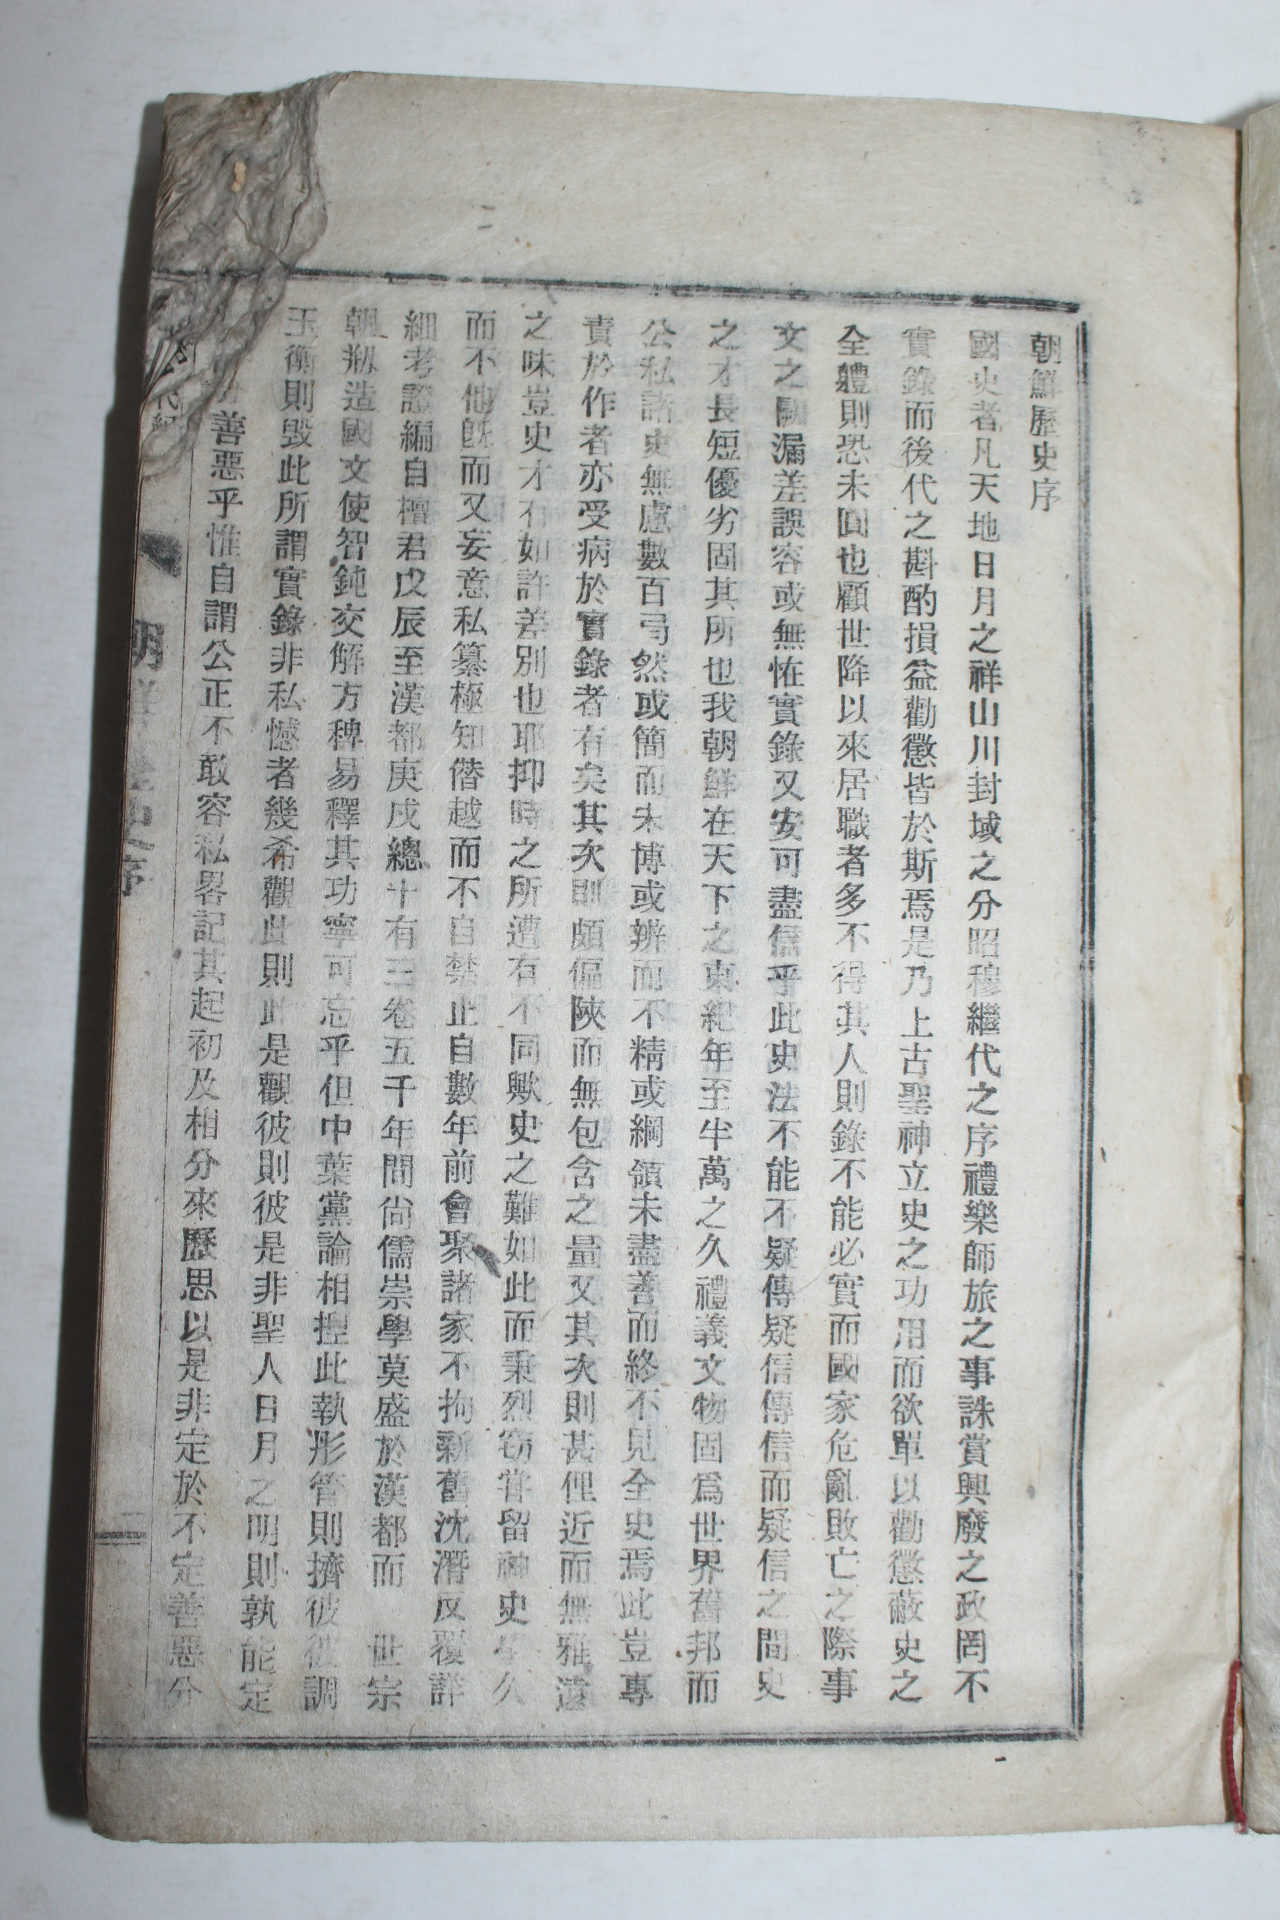 朝鮮歷史序
國史者凡天地日月之祥山川封域之分昭穆繼代之序禮樂師旅之事誅賞興廢之政罔不
實錄而後代之斟酌損益勸懲皆於斯焉是乃上古聖神立史之功用而欲單以勸懲蔽史之
全軆則恐未圓也顧世降以來居職者多不得其人則錄不能必實而國家危亂敗亡之際事
文之闕漏差誤容或無恠實錄又安可盡信乎此史法不能不疑傳疑信傳信而疑信之間史
之才長短優劣固其所也我朝鮮在天下之東紀年至半萬之久禮義文物固爲世界舊邦而
公私諸史無慮數百弓然或簡而未博或辨而不精或綱領未盡善而終不見全史焉此豈專
責於作者亦受病於實錄者有矣其次則頗偏陜而無包含之量又其次則甚俚近而無雅遠
之味豈史才有如許差別也耶抑時之所遭有不同歟史之難如此而秉烈窃甞留神史學久
而不他旣而又妄意私纂極知僭越而不自禁止自數年前會聚諸家不拘新舊沈潛反覆詳
細考證編自檀君戊辰至漢都庚戌總十有三卷五千年間尙儒崇學莫盛於漢都而 世宗
朝刱造國文使智鈍交解方稗易釋其功寧可忘乎但中葉黨論相捏此執彤管則擠彼彼調
玉衡則毁此所謂實錄非私憾者幾希觀此則此是觀彼則彼是非聖人日月之明則孰能定
善惡乎惟自謂公正不敢容私畧記其起初及相分來歷思以是非定於不定善惡分
朝鮮歷史序